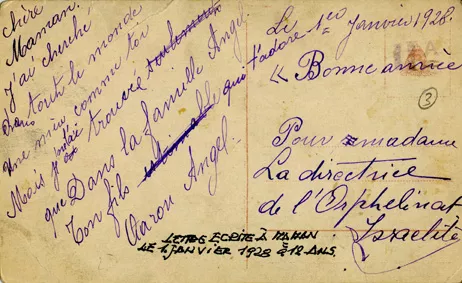 chère
Maman.
J'ai cherché
Dans tout le monde
Une mère comme toi
Mais j'ai trouvée seulement
que Dans la famille Angel
Ton fils qui t'adore
Aaron Angel.
Le 1er Janvier 1928.
« Bonne année
3
Pour madame
La directrice
de l'Orphelinat
Israelite
LETTRE ECRITE À MAMAN
LE 1 JANVIER 1928 À 12 ANS.